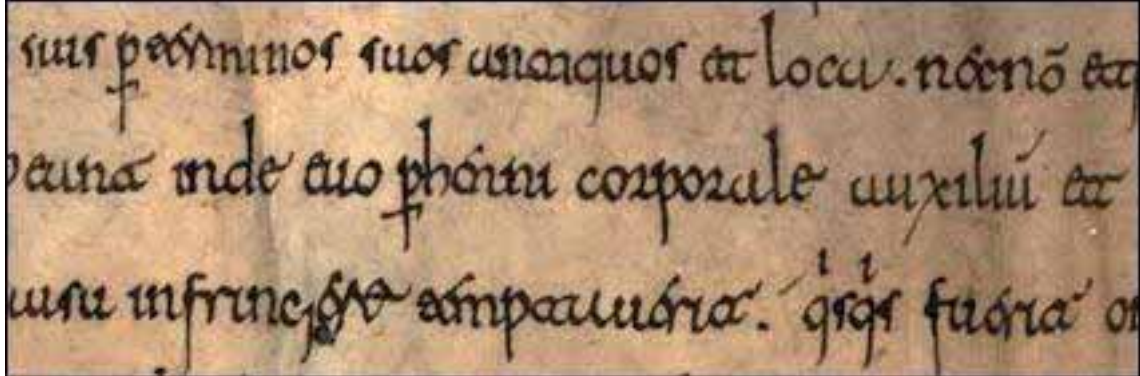 suis p terminos suos antiquos et loca. necnō et
inde euo phenni corporale auxiliū et
ausu infringere temptauerit. qⁱsqⁱs fuerit